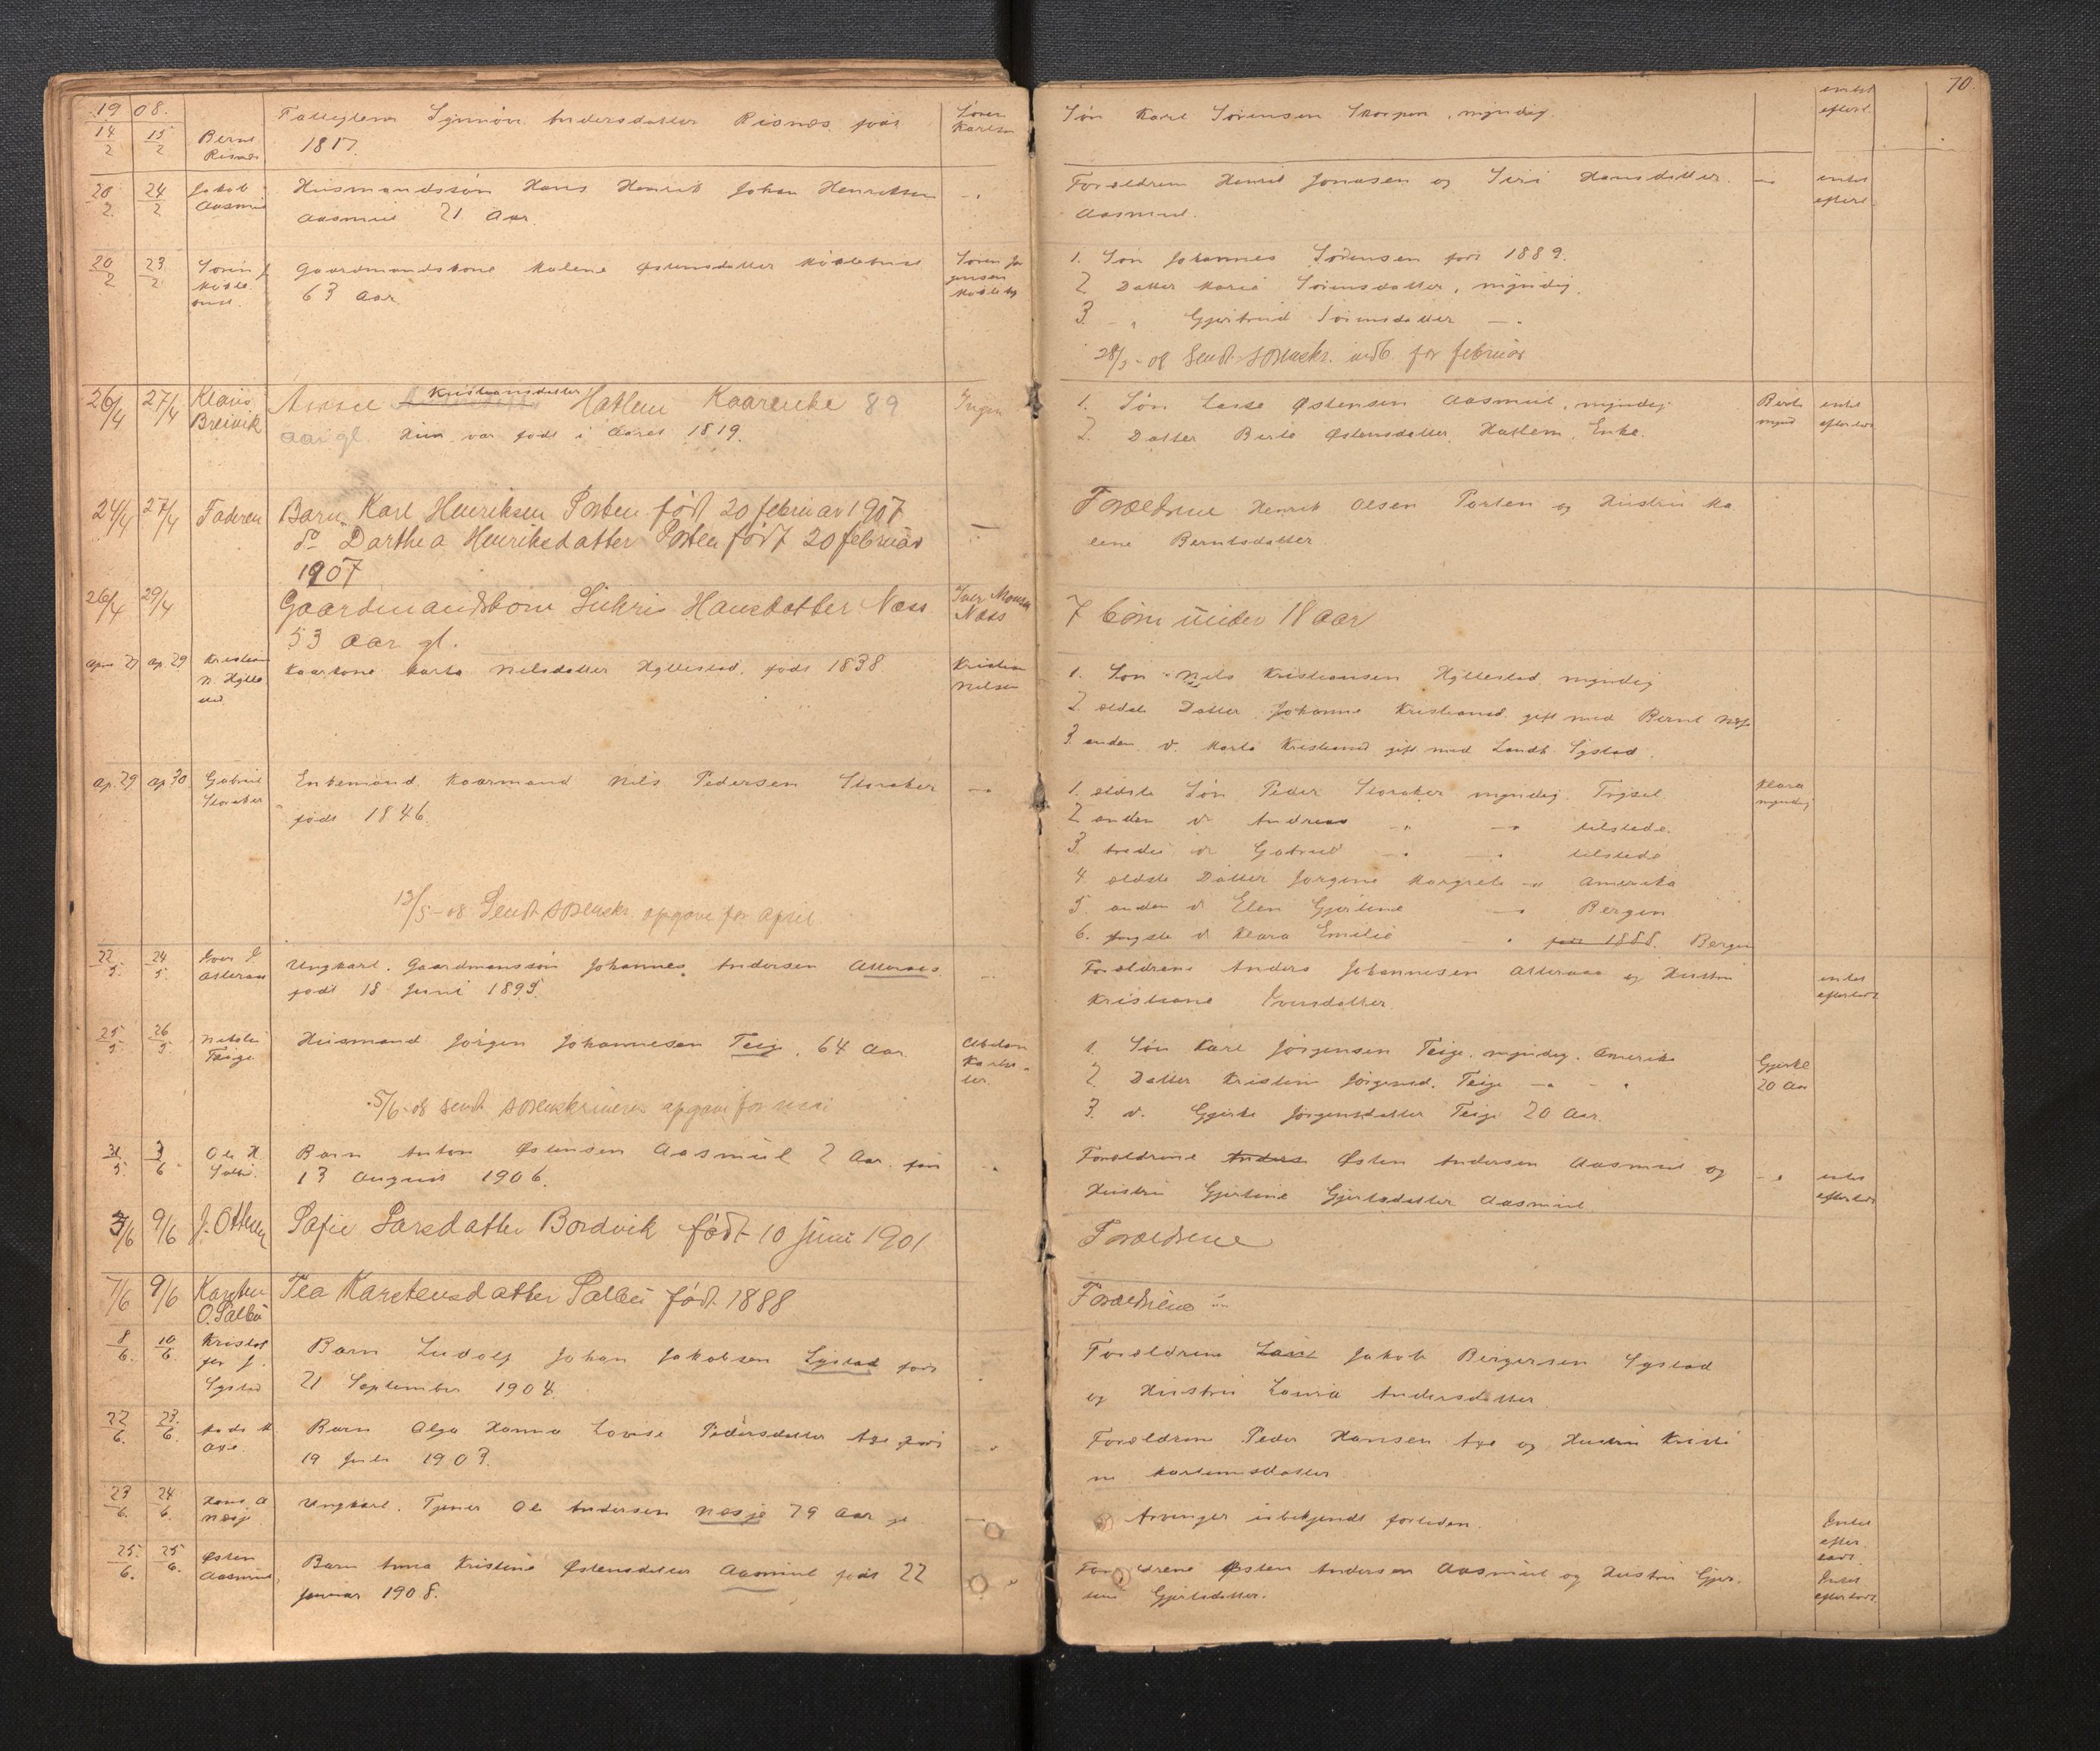 70.
1908.
14/2 15/2 Bernt Risnæs Fattiglem Synnøve Andersdatter Risnæs født Søren Karlsen
1817.
Søn Karl Sørensen Skorpen, myndig. intet efterl
20/2 24/2 Jakob Aasmul Husmandssøn Hans Henrik Johan Henriksen
Aasmul 21 Aar.
Forældrene Henrik Jonasen og Siri Hansdatter intet efterl
Aasmul.
20/2 23/2 Søren J Gaardmandskone Malene Østensdatter
63 Aar
1. Søn Johannes Sørensen født 1889.
2 Datter Maria Sørensdatter, myndig.
3. " Gjertrud Sørensdatter
28/3-08 Sendt sorenskr. indb. for februar
26/4 27/4 Klaus Breivik Anne Kristiansdatter Hatlem Kaarenke 89 Ingen
Aar gl. Hun var født i Aaret 1819.
1. Søn Lasse Østensen Aasmul, myndig
2. Datter Berte Østensdatter Hatlem, Enke.
Berte mynd intet efterladt
24/4 27/4 Faderen Barn Karl Henriksen Porten født 20 februar 1907
do Darthea Henriksdatter Porten født 20 februar
1907
Forældrene Henrik Olsen Porten og Hustru Ma
lene Berntsdatter
26/4 29/4 Gaardmandskone Hansdatter Næss Iver Monsen Næss
53 aar gl.
7 børn under 18 aar
April 27 Ap. 29 Kristian N. Hyllestad Kaarkone Marta Nilsdatter Hyllestad, født 1838 Kristian Nilsen
1. Søn Nils Kristiansen Hyllestad myndig
2 ældste Datter Johanne Kristiansd. gift med Bernt
3. anden d. Marta Kristiansd gift med Systad.
Ap. 29 Ap 30 Gabriel Storaker Enkemand Kaarmand Nils Pedersen Storaker
født 1846.
1. ældste Søn Peder Storaker myndig Trysil.
2 anden d. Andreas " tilstede.
3 tredie d. Gabriel " tilstede
4. ældste Datter Jørgine Margrete Amerika
5. anden d Elen Gjertine Bergen
6. yngste d Klara Emilie født 1888. Bergen
Klara myndig
13/5-08 Sendt sorenskr. opgave for april
22/5. 24/5. Ungkarl. Gaardmanssøn Johannes Andersen Atteraas
født 18 Juni 1895.
Forældrene Anders Johannesen Atteraas og Hustru
Kristiane Iversdatter
intet efterladt
25/5. 26/5. Natalie Teige Husmand Jørgen Johannesen Teige, 64 Aar.
1. Søn Karl Jørgensen Teige, myndig. Amerika
2. Datter Kristine Jørgensd. Teige
3. d. Gjerte Jørgensdatter Teige 20 Aar.
Gjerte 20 Aar
5/6-08 sendt sorenskriveren opgave for mai
31/5. 3/6 Ole H. Salbu. Barn Anton Østensen Aasmul 2 Aar. født
13 August 1906.
Forældrene Anders Østen Andersen Aasmul og
Hustru Gjertine Gjertsdatter Aasmul
intet efterladt
3/6 9/6 J. Ottesen Sofie Larsdatter Bordvik født 10 juni 1901
Forældrene
7/6 9/6 Karsten O. Salbu Tea Karstensdatter Salbu født 1888
Forældrene
8/6. 10/6. Kristoffer J. Systad Barn Ludolf Johan Jakobsen Systad født
21 September 1904.
Forældrene Jakob Bergersen Systad
og Hustru Laura Andersdatter
22/6. 23/6. Mads Barn Olga Hanna Lovise Pedersdatter født
19 Juli 1903.
Forældrene Peder Hansen og Hustru Kristi
ne Martinusdatter
23/6. 24/6. Hans A Næsje Ungkarl. Tjener Ole Andersen Næsje 79 Aar gl
Arvinger ubekjendt forleden.
Intet efterladt.
25/6. 25/6. Østen Aasmul Barn Anna Kristine Østensdatter Aasmul født 22
Januar 1908.
Forældrene Østen Andersen Aasmul og Hustru Gjer-
tine Gjertsdatter.
Intet efterladt.